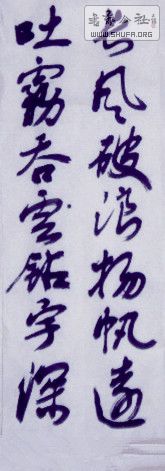 长风破浪扬帆远
吐雾吞云钻字深
書法公社
WWW.SHUFA.ORG